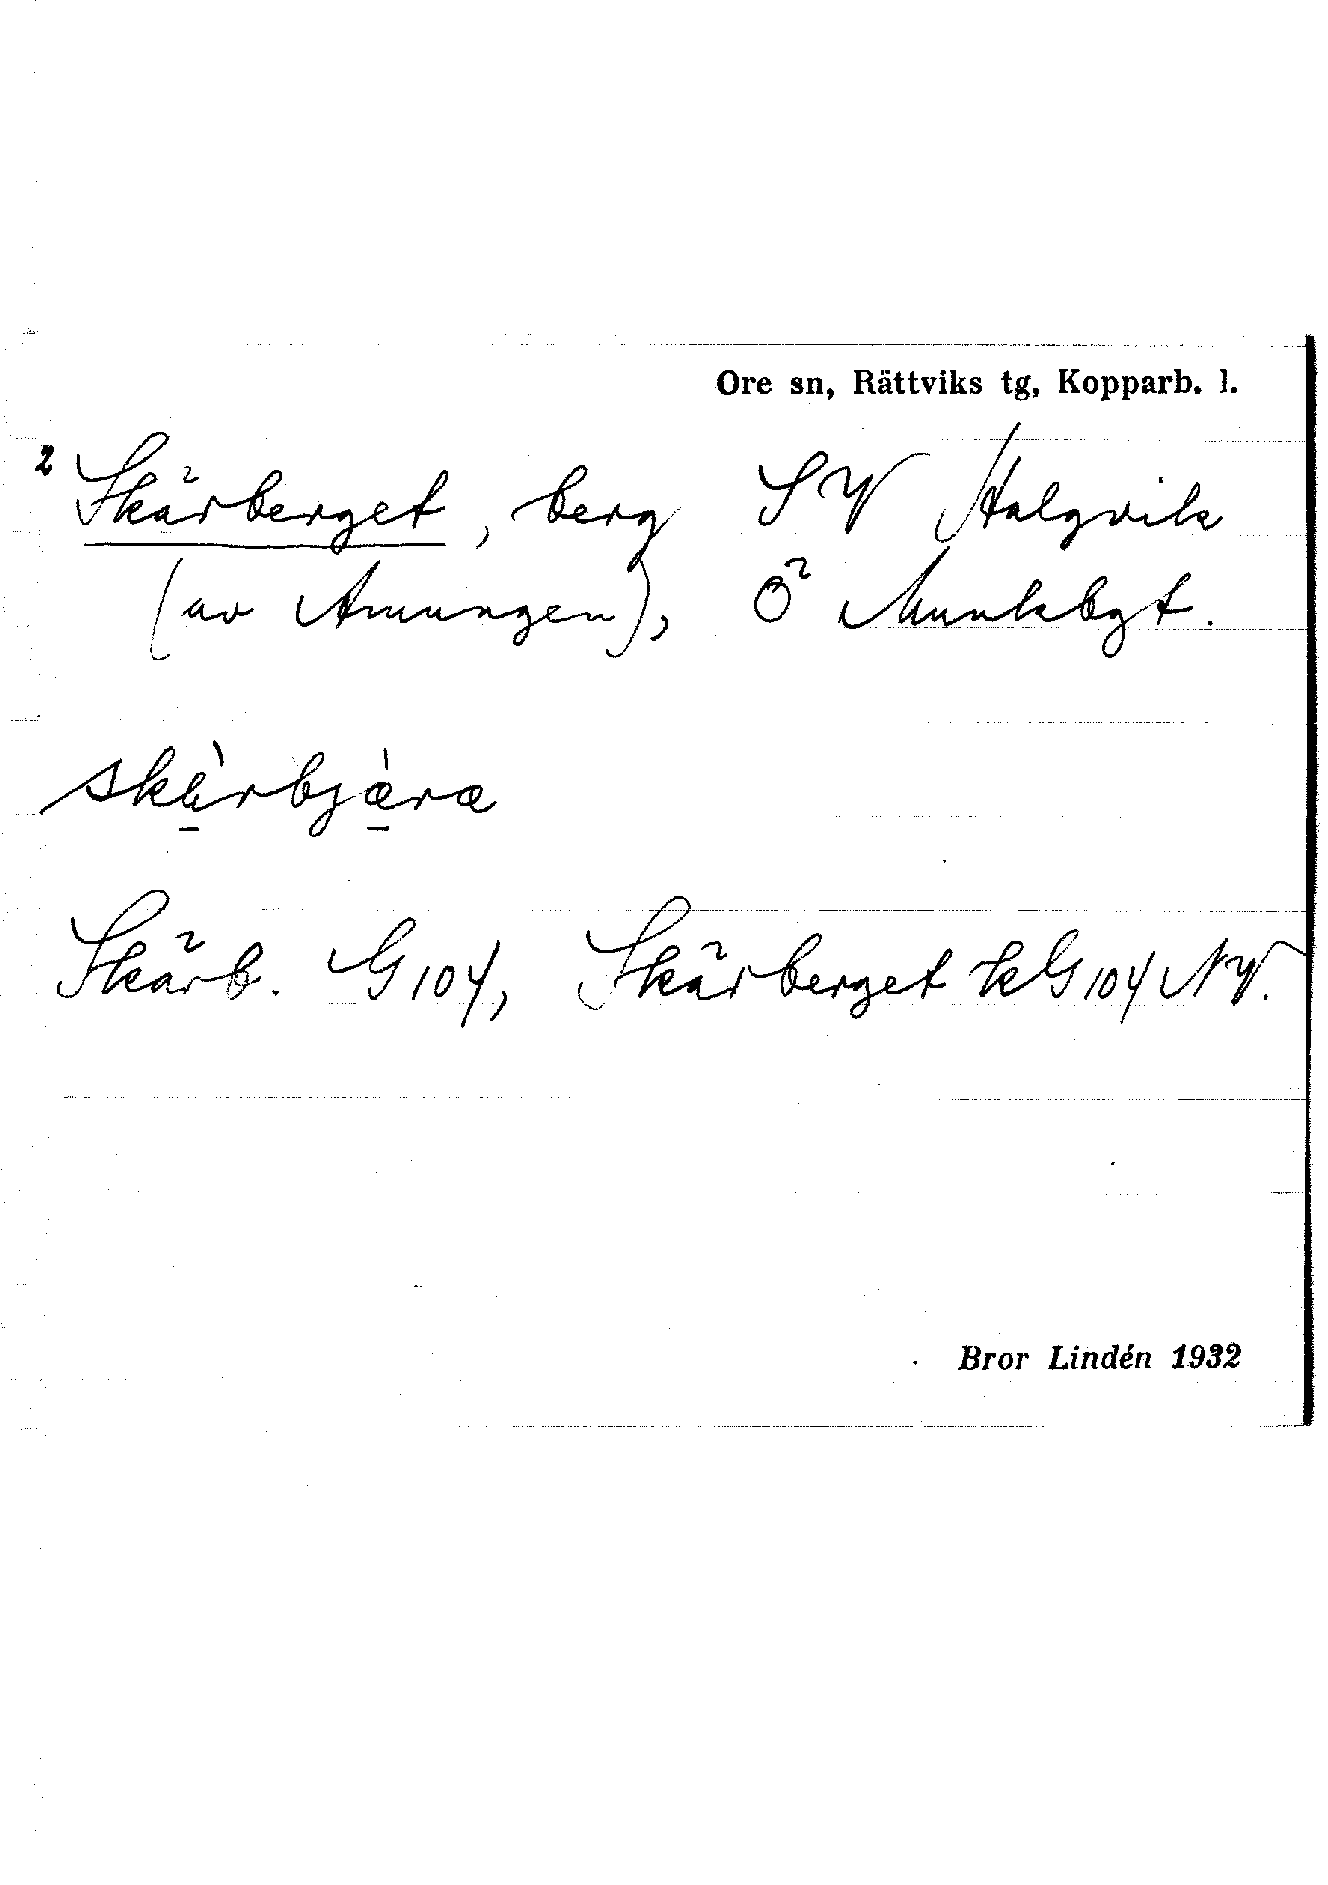 Ore sn, Rättviks tg, Kopparb. l.
2 Skärberget, berg SV Halgvik
(av Amungen), Ö Munkbgt.
Skärb. G 104, Skärberget kG 104 NV.
Bror Lindén 1932